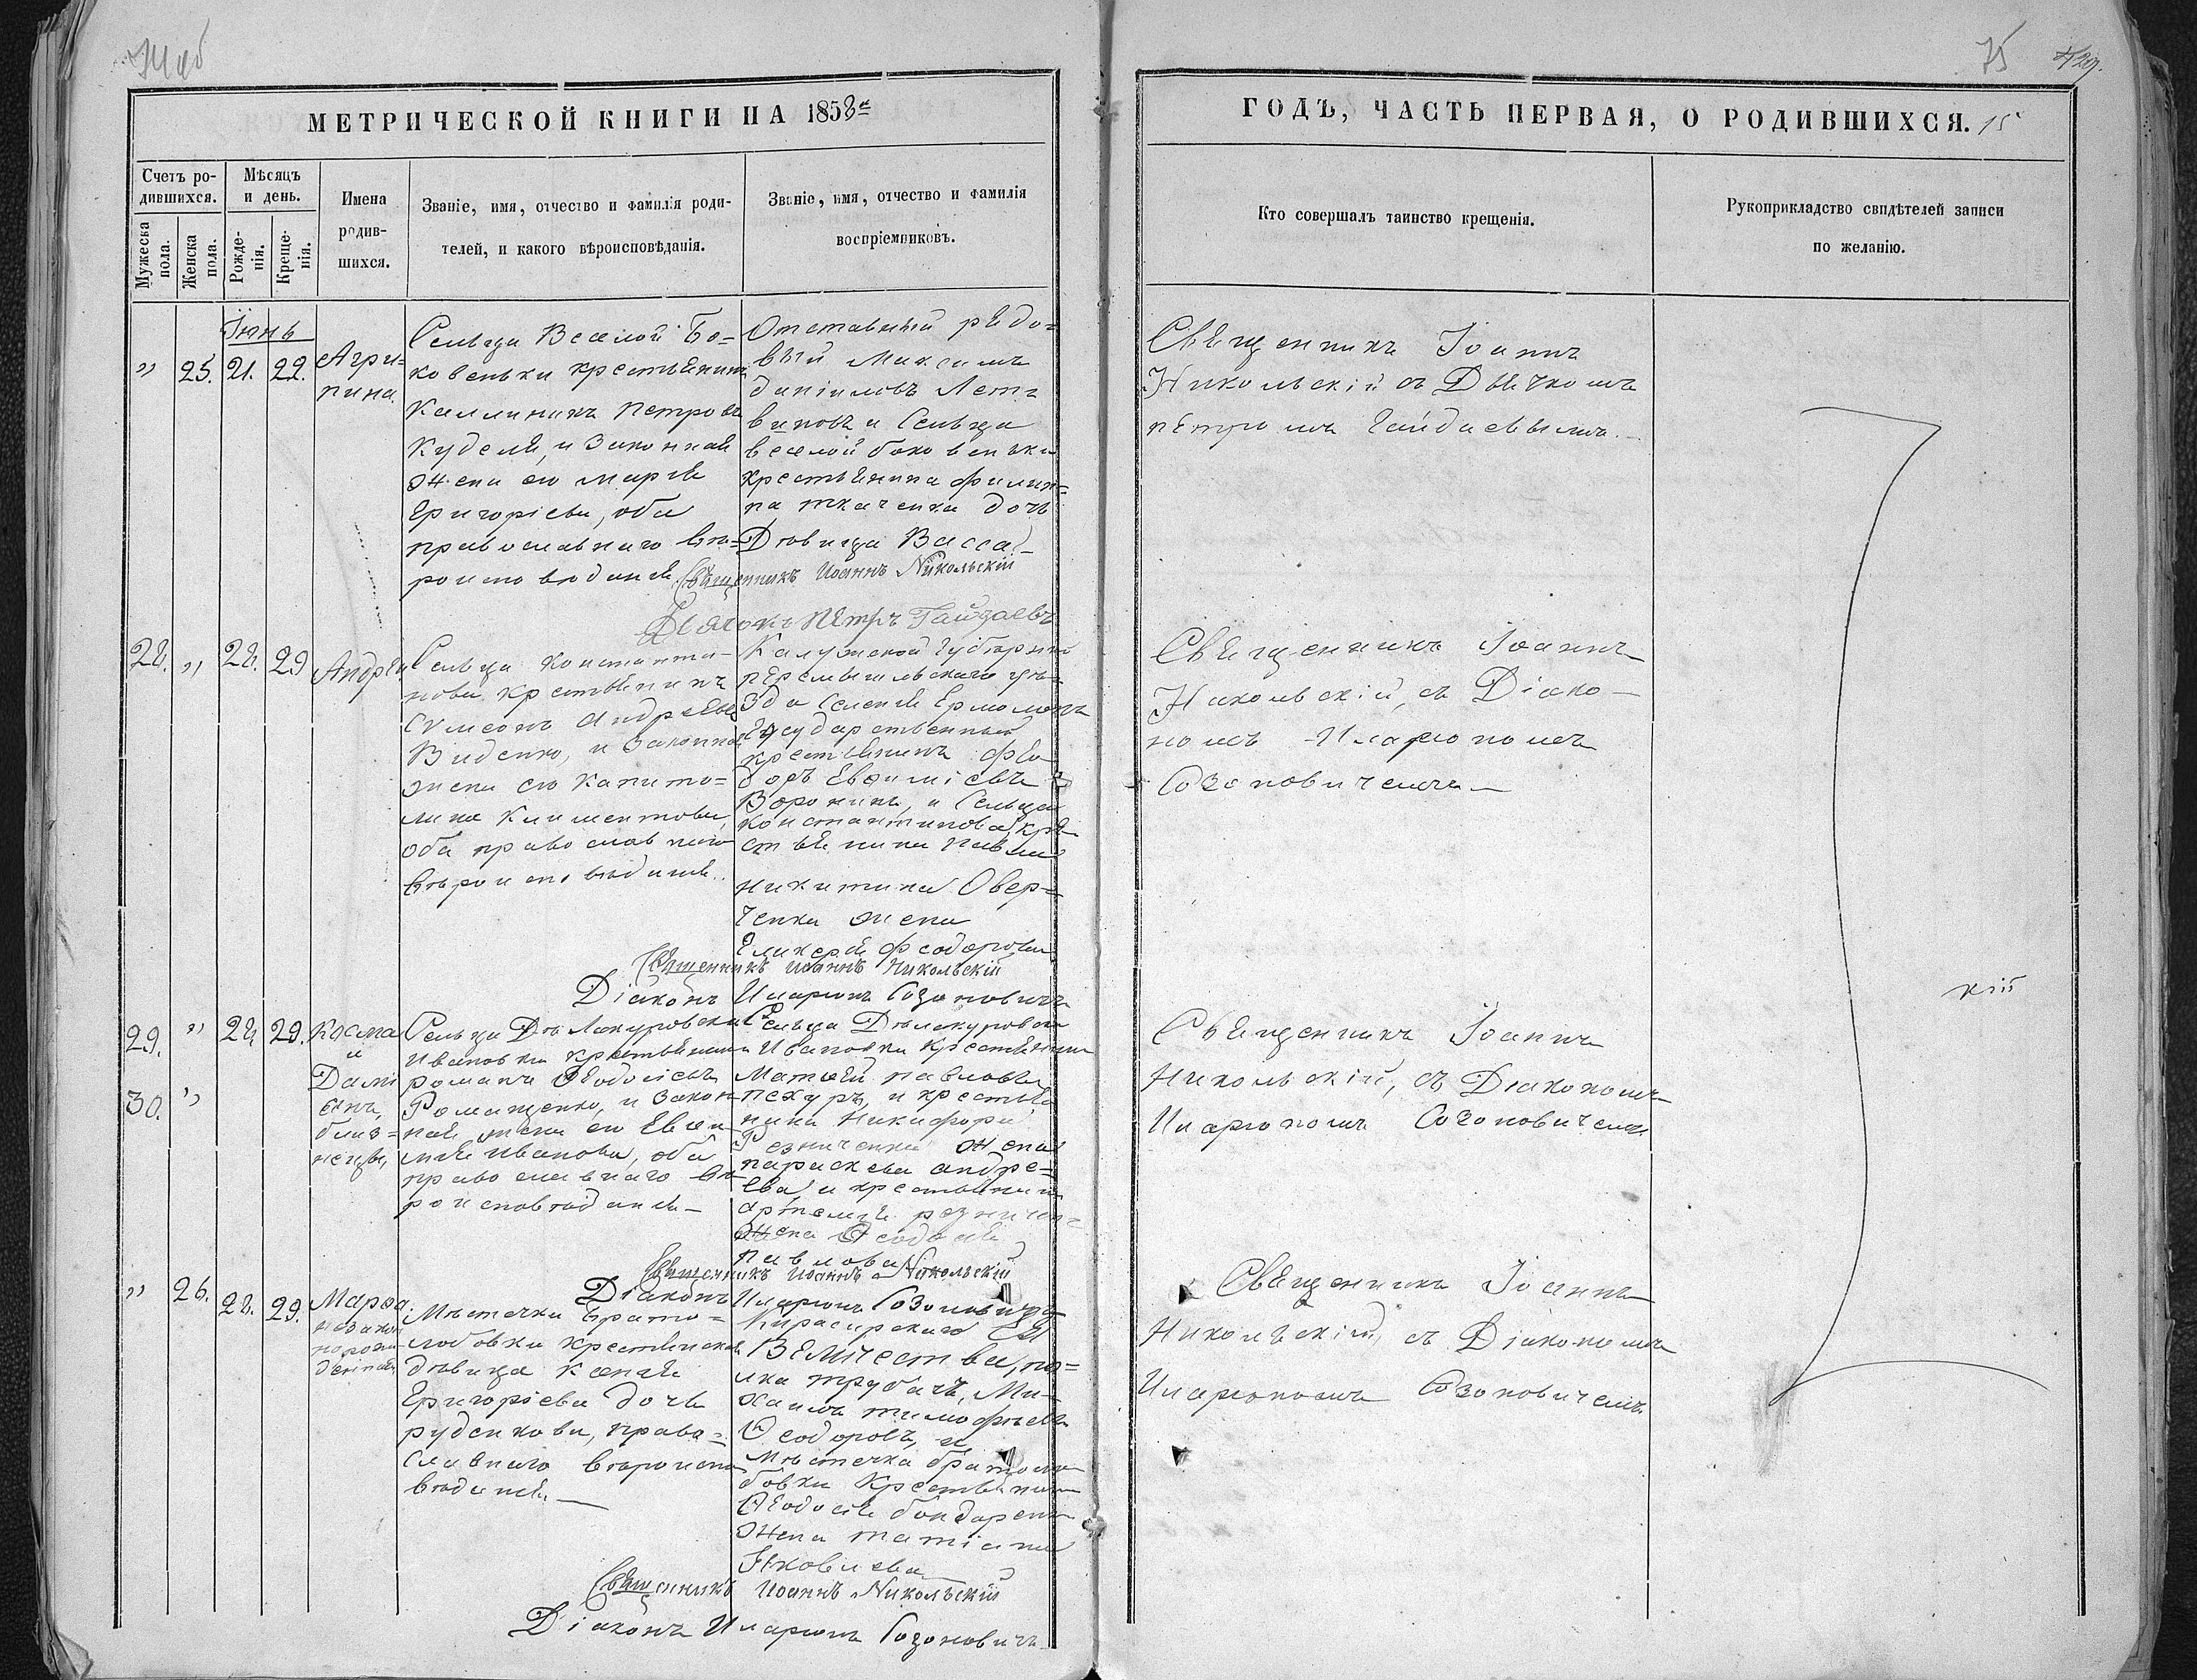 75
МЕТРИЧЕСКОЙ КНИГИ НА 1858й
ГОДЪ, ЧАСТЬ ПЕРВАЯ, О РОДИВШИХСЯ. 15
Счетъ ро-
дившихся.
Мужеска пола.
Женска пола.
Мѣсяцъ
и день.
Рожде-
нія.
Креще-
нія.
Имена
родив-
шихся.
Званіе, имя, отчество и фамилія роди-
телей, и какого вѣроисповѣданія.
Званіе, имя, отчество и фамилія
воспріемниковъ.
Кто совершалъ таинство крещенія.
Рукоприкладство свидѣтелей записи
по желанію.
Іюнь
" 25. 21. 22.
Агри=
пина.
Сельца Веселой Бо=
ковеньки крестьянинъ
Каллиникъ Петровъ
Куделя, и законная
жена его Марія
Григоріева, оба
православнаго вѣ=
роисповѣданія.
Отставный рядо=
вый Максимъ
Даніиловъ
и Сельца
Веселой Боковеньки
крестьянина Филип=
па Ткаченка дочь
Дѣвица Васса
Священникъ Іоаннъ
Никольскій съ Дьячкомъ
Петромъ Гайдаевымъ.
Священникъ Иоаннъ Никольскій
Дьячокъ Петръ Гайдаевъ
28. " 28. 29
Андрей
Сельца Константи-
нова крестьянинъ
Сѵмеонъ Андреевъ
Виденко, и законная
жена его Капито=
лина Климентова,
оба православнаго
вѣроисповѣданія.
Калужской Губерніи
Перемышльскаго уѣ-
зда Селенія
Государственный
крестьянинъ Фео-
доръ Евѳиміевъ
Воронинъ, и Сельца
Константинова кре-
стьянина Павла
Никитина Овер=
ченка жена
Гликерія Феодорова
Священникъ Іоаннъ
Никольскій, съ Діако-
номъ Иларіономъ
Созоновичемъ
Священникъ Иоаннъ Никольскій
Діаконъ Иларіонъ Созоновичъ
29. " 28. 29.
30. "
Косма
и
Дамі
анъ,
близ=
нецы,
Сельца
Ивановки крестьянинъ
Романъ Ѳеодосіевъ
Ромащенко, и закон-
ная жена его Евѳи-
мія Иванова, оба
православнаго вѣ-
роисповѣданія
Сельца
Ивановки крестьянинъ
Матѳей Павловъ
Пехуръ, и крестья-
нина Никифора
Резниченка жена
Параскева Андре=
ева, и крестьянина
Артемія Резничен-
жена Ѳеодосія
Павлова
Священникъ Іоаннъ
Никольскій, съ Діакономъ
Иларіономъ Созоновичемъ
кій
Священникъ Иоаннъ Никольскій
Діаконъ Иларіонъ Созоновичъ
" 26. 28. 29.
Марѳа.
незакон
норож-
денная
Мѣстечка Брато=
любовки крестьянская
дѣвица Ксенія
Григоріева дочь
Руденкова, право=
славнаго вѣроиспо
вѣданія.
Кирасирскаго Ея
Величества, по=
лка трубачъ, Ми-
хаилъ Тимофѣевъ
Ѳеодоровъ, и
мѣстечка Братолю
бовки крестьянина
Ѳеодосія Бондаренк
жена Татіана
Яковлева
Священникъ Іоаннъ
Никольскій, съ Діакономъ
Иларіономъ Созоновичемъ
Священникъ Иоаннъ Никольскій
Діаконъ Иларіонъ Созоновичъ